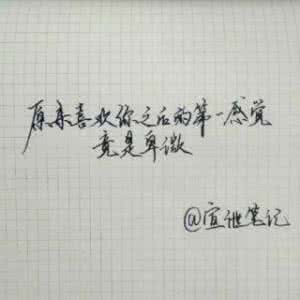 原来喜欢你之后的第一感觉
竟是卑微
@宣他笔记